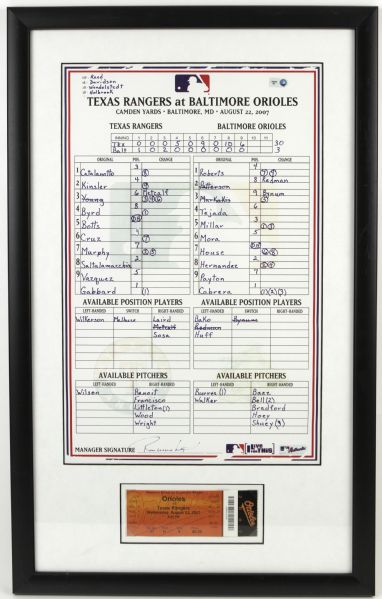 Reed
Davidson
Wendelstedt
Holbrook
TEXAS RANGERS at BALTIMORE ORIOLES
CAMDEN YARDS • BALTIMORE, MD • AUGUST 22, 2007
TEXAS RANGERS BALTIMORE ORIOLES
INNING 1 2 3 4 5 6 7 8 9 10 11
Tex 0 0 0 5 0 9 0 10 6 30
Balt 1 0 2 0 0 0 0 0 0 3
ORIGINAL POS. CHANGE ORIGINAL POS. CHANGE
1 Catalanotto 1 Roberts
2 Kinsler 2 Redman
3 Young 6 Metcalf 3 Markakis 9 Bynum
4 Byrd 4 Tejada
5 Botts 5 Millar
6 Cruz 6 Mora
7 Murphy 7 House
8 Saltalamacchia 8 Hernandez
9 Vazquez 9 Payton
Gabbard Cabrera
AVAILABLE POSITION PLAYERS AVAILABLE POSITION PLAYERS
LEFT-HANDED SWITCH RIGHT-HANDED LEFT-HANDED SWITCH RIGHT-HANDED
Wilkerson Laird Bako Bynum
Metcalf Redman
Sosa Huff
AVAILABLE PITCHERS AVAILABLE PITCHERS
LEFT-HANDED RIGHT-HANDED LEFT-HANDED RIGHT-HANDED
Wilson Benoit Burres (1) Baez
Francisco Walker Bell (2)
Littleton (1) Bradford
Wood Hoey
Wright Shuey (3)
MANAGER SIGNATURE
Orioles
Texas Rangers
Wednesday, August 22, 2007